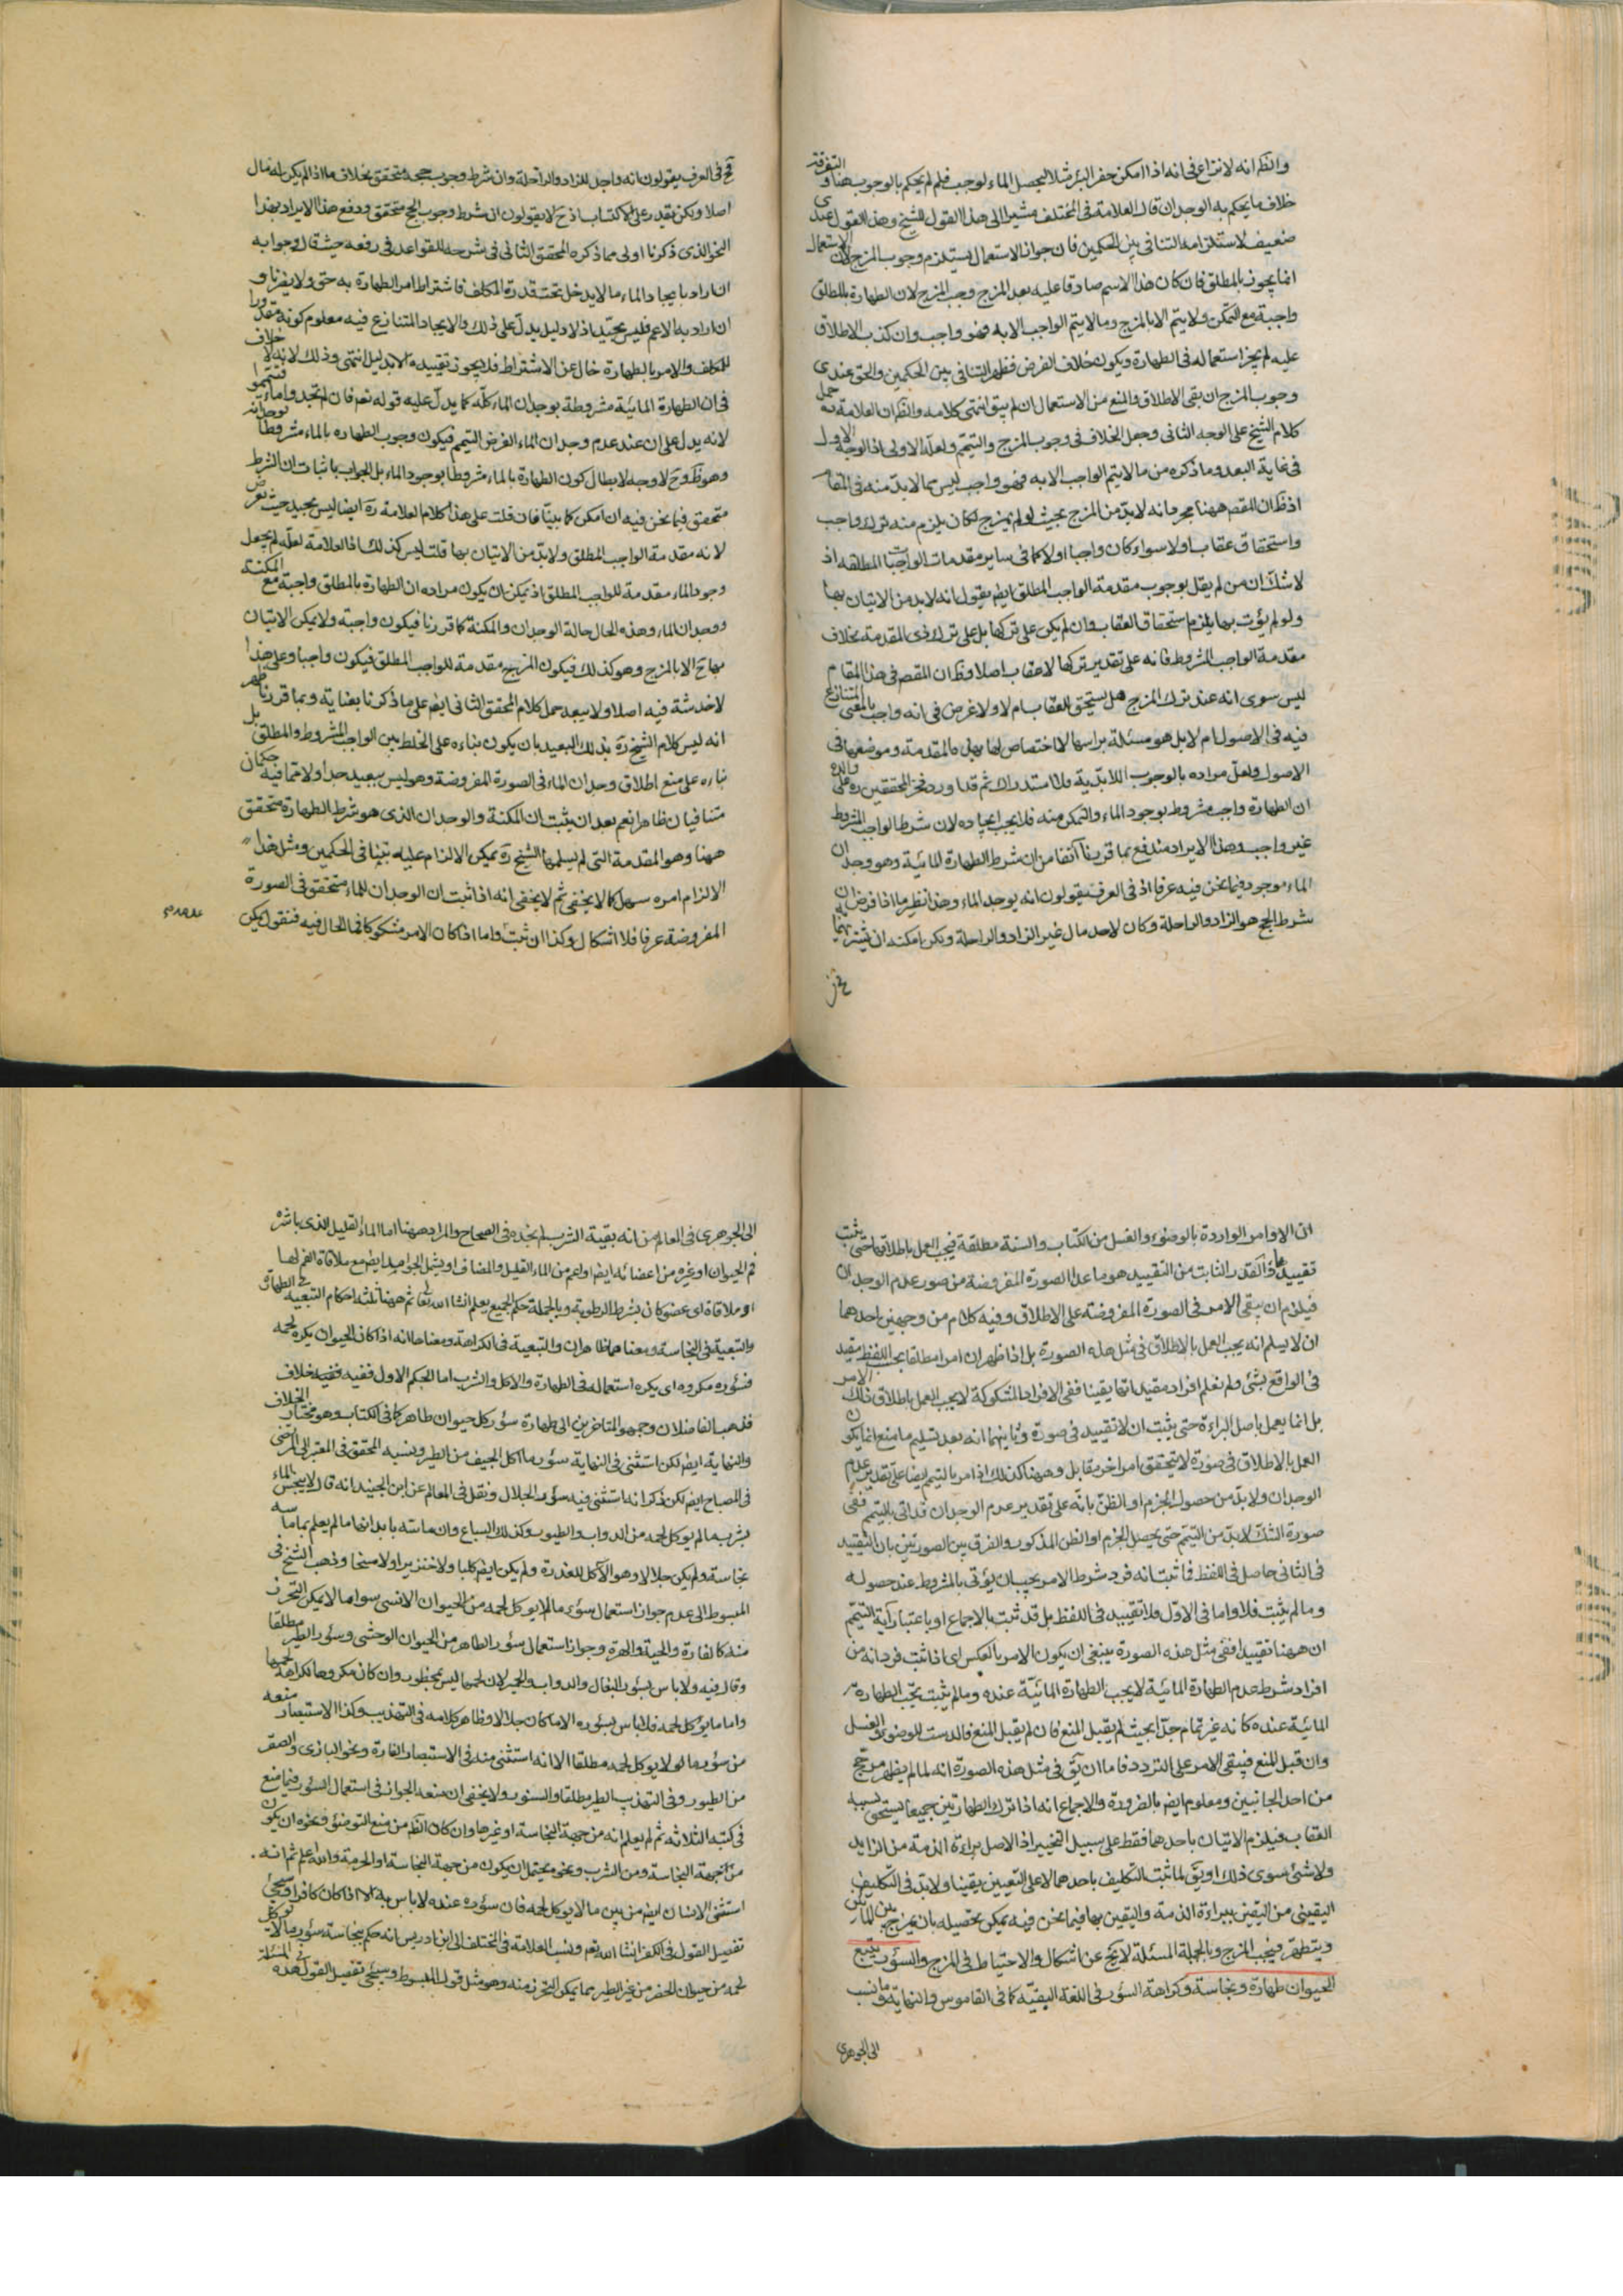 والظ انه لا نزاع في انه اذا امكن حفر البئر مثلا ليحصل الماء لوجب فلم لم يحكم بالوجوب هنا و التفرقة
خلاف ما يحكم به الوجدان قال العلامة في المختلف مشيرا الى هذا القول للشيخ وهذا القول عندى
ضعيف لاستلزامه التنافي بين الحكمين فان جواز الاستعمال يستلزم وجوب المزج لان الاستعمال
انما يجوز بالمطلق فان كان هذا الاسم صادقا عليه بعد المزج وجب المزج لان الطهارة بالمطلق
واجبة مع التمكن ولا يتم الا بالمزج وما لا يتم الواجب الا به فهو واجب وان كذب الاطلاق
عليه لم يجز استعماله في الطهارة ويكون خلاف الفرض فظهر التنافي بين الحكمين والحق عندى
وجوب المزج ان بقى الاطلاق والمنع من الاستعمال ان لم يبق انتهى كلامه والظ ان العلامة ره حمل
كلام الشيخ على الوجه الثاني وجعل الخلاف في وجوب المزج والتيمم ولعله الاولى اذ الوجه الاول
في غاية البعد وما ذكره من ما لا يتم الواجب الا به فهو واجب ليس مما لا بد منه في المقام
اذ ظ ان المقصم ههنا مجرد انه لا بد من المزج بحيث لو لم يمزج لكان يلزم منه ترك واجب
واستحقاق عقاب اولا سواء كان واجبا اولا كما في ساير مقدمات الواجبات المطلقة اذ
لا شك ان من لم يقل بوجوب مقدمة الواجب المطلق ايضا يقول انه لا بد من الاتيان بها
ولو لم يؤت بها يلزم استحقاق العقاب وان لم يكن على تركها بل على ترك ذى المقدمة بخلاف
مقدمة الواجب المشروط فانه على تقدير تركها لا عقاب اصلا وظ ان المقصم في هذا المقام
ليس سوى انه عند ترك المزج هل يستحق العقاب ام لا ولا غرض في انه واجب بالمعنى المتنازع
فيه في الاصول ام لا بل هو مسئلة براسها لا اختصاص لها بهذه المقدمة وموضعها في
الاصول ولعل مراده بالوجوب اللابدية ولا استدراك ثم قد اورد فخر المحققين ره على والده
ان الطهارة واجب مشروط بوجود الماء والتمكن منه فلا يجب ايجاده لان شرط الواجب المشروط
غير واجب وهذا الايراد مندفع بما قررنا آنفا من ان شرط الطهارة المائية وهو وجدان
الماء موجود فيما نحن فيه عرفا اذ في العرف يقولون انه يوجد الماء وهذا نظير ما اذا فرض ان
شرط الحج هو الزاد والراحلة وكان لاحد مال غير الزاد والراحلة ولكن امكنه ان يشتريهما
فح في العرف يقولون انه واجد للزاد والراحلة وان شرط وجوب حجه متحقق بخلاف ما اذا لم يكن له مال
اصلا ولكن يقدر على الاكتساب اذ ح لا يقولون ان شرط وجوب الحج متحقق ودفع هذا الايراد بهذا
النحو الذى ذكرنا اولى مما ذكره المحقق الثاني في شرحه للقواعد في رفعه حيث قال وجوابه
ان اراد بايجاد الماء ما لا يدخل تحت قدرة المكلف فاشتراط امر الطهارة به حق ولا يضرنا و
ان اراد به الاعم فليس بجيد اذ لا دليل يدل على ذلك والايجاد المتنازع فيه معلوم كونه مقدورا
للمكلف والامر بالطهارة خال عن الاشتراط فلا يجوز تقييده الا بدليل انتهى وذلك لانه لا خلاف
في ان الطهارة المائية مشروطة بوجدان الماء كله كما يدل عليه قوله تعم فان لم تجدوا ماء فتيمموا
لانه يدل على ان عند عدم وجدان الماء الفرض التيمم فيكون وجوب الطهارة بالماء مشروطا بوجدانه
وهو ظ وح لا وجه لابطال كون الطهارة بالماء مشروطا بوجود الماء بل الجواب باثبات ان الشرط
متحقق فيما نحن فيه ان امكن كما بينا فان قلت على هذا كلام العلامة ره ايضا ليس بجيد حيث تعرض
لانه مقدمة الواجب المطلق ولا بد من الاتيان بها قلت ليس كذلك اذ العلامة لعله لم يجعل
وجود الماء مقدمة للواجب المطلق اذ يمكن ان يكون مراده ان الطهارة بالمطلق واجبة مع المكنة
ووجدان الماء وهذه الحال حالة الوجدان والمكنة كما قررنا فيكون واجبة ولا يمكن الاتيان
بها ح الا بالمزج وهو كذلك فيكون المزج مقدمة للواجب المطلق فيكون واجبا وعلى هذا
لا خدشة فيه اصلا ولا يبعد حمل كلام المحقق الثاني ايضا على ما ذكرنا بعناية وبما قررنا ظهر
انه ليس كلام الشيخ ره بذلك البعيد بان يكون بناءه على الخلط بين الواجب المشروط والمطلق بل
بناءه على منع اطلاق وجدان الماء في الصورة المفروضة وهو ليس ببعيد جدا ولا حتما فيه حكمان
متنافيان ظاهرا نعم بعد ان يثبت ان المكنة والوجدان الذى هو شرط الطهارة متحقق
ههنا وهو المقدمة التي لم يسلمها الشيخ ره يمكن الالزام عليه بتنافي الحكمين ومثل هذا
الالزام امره سهل كما لا يخفى ثم لا يخفى انه اذا ثبت ان الوجدان للماء متحقق في الصورة
المفروضة عرفا فلا اشكال وكذا ان ثبت واما اذا كان الامر مشكوكا في الحال فيه فنقول يمكن
ان الاوامر الواردة بالوضوء والغسل من الكتاب والسنة مطلقة فيجب العمل باطلاقها حتى يثبت
تقييدها والقدر الثابت من التقييد هو ما عدا الصورة المفروضة من صور عدم الوجدان
فيلزم ان يبقى الامر في الصورة المفروضة على الاطلاق وفيه كلام من وجهين احدهما
ان لا يسلم انه يجب العمل بالاطلاق في مثل هذه الصورة بل اذا ظهر ان امرا مطلقا بحسب اللفظ مقيد
في الواقع بشئ ولم نعلم افراد مقيداتها يقينا ففي الافراد المشكوكة لا يجب العمل باطلاق ذلك الامر
بل انما يعمل باصل البراءة حتى يثبت ان لا تقييد في صورة وثانيهما انه بعد تسليم ما منع انما يكون
العمل بالاطلاق في صورة لا يتحقق امر اخر يقابل وههنا كذلك اذ امر بالتيمم ايضا على تقدير عدم
الوجدان ولا بد من حصول الجزم او الظن بانه على تقدير عدم الوجدان قد اتى بالتيمم ففي
صورة الشك لا بد من التيمم حتى يحصل الجزم او الظن المذكور والفرق بين الصورتين بان التقييد
في الثاني حاصل في اللفظ فما ثبت انه فرد شرط الامر يجب ان يؤتى بالمشروط عند حصوله
وما لم يثبت فلا واما في الاول فلا تقييد في اللفظ بل قد ثبت بالاجماع او باعتبار آية التيمم
ان ههنا تقييدا ففي مثل هذه الصورة ينبغي ان يكون الامر بالعكس اى اذا ثبت فرد انه من
افراد شرط عدم الطهارة المائية لا يجب الطهارة المائية عنده وما لم يثبت يجب الطهارة
المائية عنده كانه غير تمام جدا بحيث لم يقبل المنع فان لم يقبل المنع فالدست للوضوء والغسل
وان قبل المنع فيبقى الامر على التردد فاما ان يق في مثل هذه الصورة انه لما لم يظهر مرجح
من احد الجانبين ومعلوم ايضا بالضرورة والاجماع انه اذا ترك الطهارتين جميعا يستحق بسببه
العقاب فيلزم الاتيان باحدهما فقط على سبيل التخيير اذ الاصل براءة الذمة من الزايد
ولا شئ سوى ذلك او يق لما ثبت التكليف باحدهما لا على التعيين يقينا ولا بد في التكليف
اليقيني من اليقين ببراءة الذمة واليقين بها فيما نحن فيه يمكن تحصيله بان يمزج بين المائين
ويتطهر فيجب المزج وبالجملة المسئلة لا يخ عن اشكال والاحتياط في المزج والسؤر يتبع
الحيوان طهارة ونجاسة وكراهة السؤر في اللغة البقية كما في القاموس والنهاية وما نسب
الى الجوهرى
الى الجوهرى في المعالم من انه بقية الشرب لم نجده في الصحاح والمراد ههنا اما الماء القليل الذى باشره
فم الحيوان او غيره من اعضائه ايضا او اعم من الماء القليل والمضاف او يشمل الجوامد ايضا مع ملاقاة الفم لها
او ملاقاة اى عضو كان بشرط الرطوبة وبالجملة حكم الجميع يعلم انشاء الله تعا ثم ههنا ثلثة احكام التبعية في الطهارة
والتبعية في النجاسة ومعناهما ظاهران والتبعية في الكراهة ومعناها انه اذا كان الحيوان يكره لحمه
فسؤره مكروه اى يكره استعماله في الطهارة والاكل والشرب اما الحكم الاول ففيه خلاف
فذهب الفاضلان وجمهور المتاخرين الى طهارة سؤر كل حيوان طاهر كما في الكتاب وهو مختار الخلاف
والنهاية ايضا لكن استثنى في النهاية سؤر ما اكل الجيف من الطير ونسبه المحقق في المعتبر الى المرتضى
في المصباح ايضا لكن ذكر انه استثنى فيه سؤر الجلال ونقل في المعالم عن ابن الجنيد انه قال لا ينجس الماء
بشرب ما لم يوكل لحمه من الدواب والطيور وكذلك السباع وان ماسته بابدانها ما لم يعلم بما ماسه
نجاسة ولم يكن جلالا وهو الآكل للعذرة ولم يكن ايضا كلبا ولا خنزيرا ولا مسخا وذهب الشيخ في
المبسوط الى عدم جواز استعمال سؤر ما لم يوكل لحمه من الحيوان الانسى سوى ما لا يمكن التحرز
منه كالفارة والحية والهرة وجواز استعمال سؤر الطاهر من الحيوان الوحشي وسؤر الطير مطلقا
وقال فيه ولا باس بسؤر البغال والدواب والحمير لان لحمها ليس بمحظور وان كان مكروها لكراهة لحمها
واما ما يؤكل لحمه فلا باس بسؤره الا ما كان جلالا وظاهر كلامه في التهذيب وكذا الاستبصار منعه
من سؤر ما لا يوكل لحمه مطلقا الا انه استثنى منه في الاستبصار الفارة ونحو البازى والصقر
من الطيور وفي التهذيب الطير مطلقا والسنور ولا يخفى ان منعه الجواز في استعمال السؤر فيما منع
في كتبه الثلاثة ثم لم يعلم انه من جهة النجاسة او غيرها وان كان الظ من منع التوضئ ونحوه ان يكون
من جهة النجاسة ومن الشرب ونحوه يحتمل ان يكون من جهة النجاسة او الحرمة والله اعلم ثم انه
استثنى الانسان ايضا من بين ما لا يوكل لحمه فان سؤره عنده لا باس به الا اذا كان كافرا وسيجئ
تفصيل القول في الكفر انشاء الله تعم ونسب العلامة في المختلف الى ابن ادريس انه حكم بنجاسة سؤر ما لا يوكل
لحمه من حيوان الحضر من غير الطير مما يمكن التحرز منه وهو مثل قول المبسوط وسيجئ تفصيل القول في هذه المسئلة